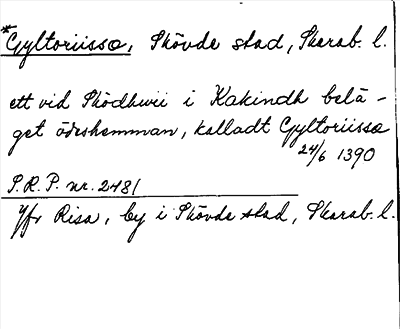 *Gyltoriissa, Skövde stad, Skarab. l.
ett vid Sködhwii i Kakindh belä-
get ödeshemman, kalladt Gyltoriissa
24/6 1390
P.R.P. nr. 2481
Jfr Risa, by i Skövde stad, Skarab. l.